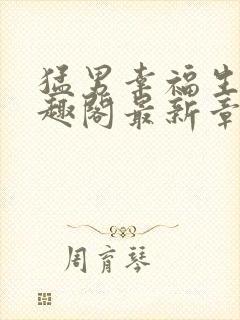 猛男幸福生
趣阁最新章
周育琴